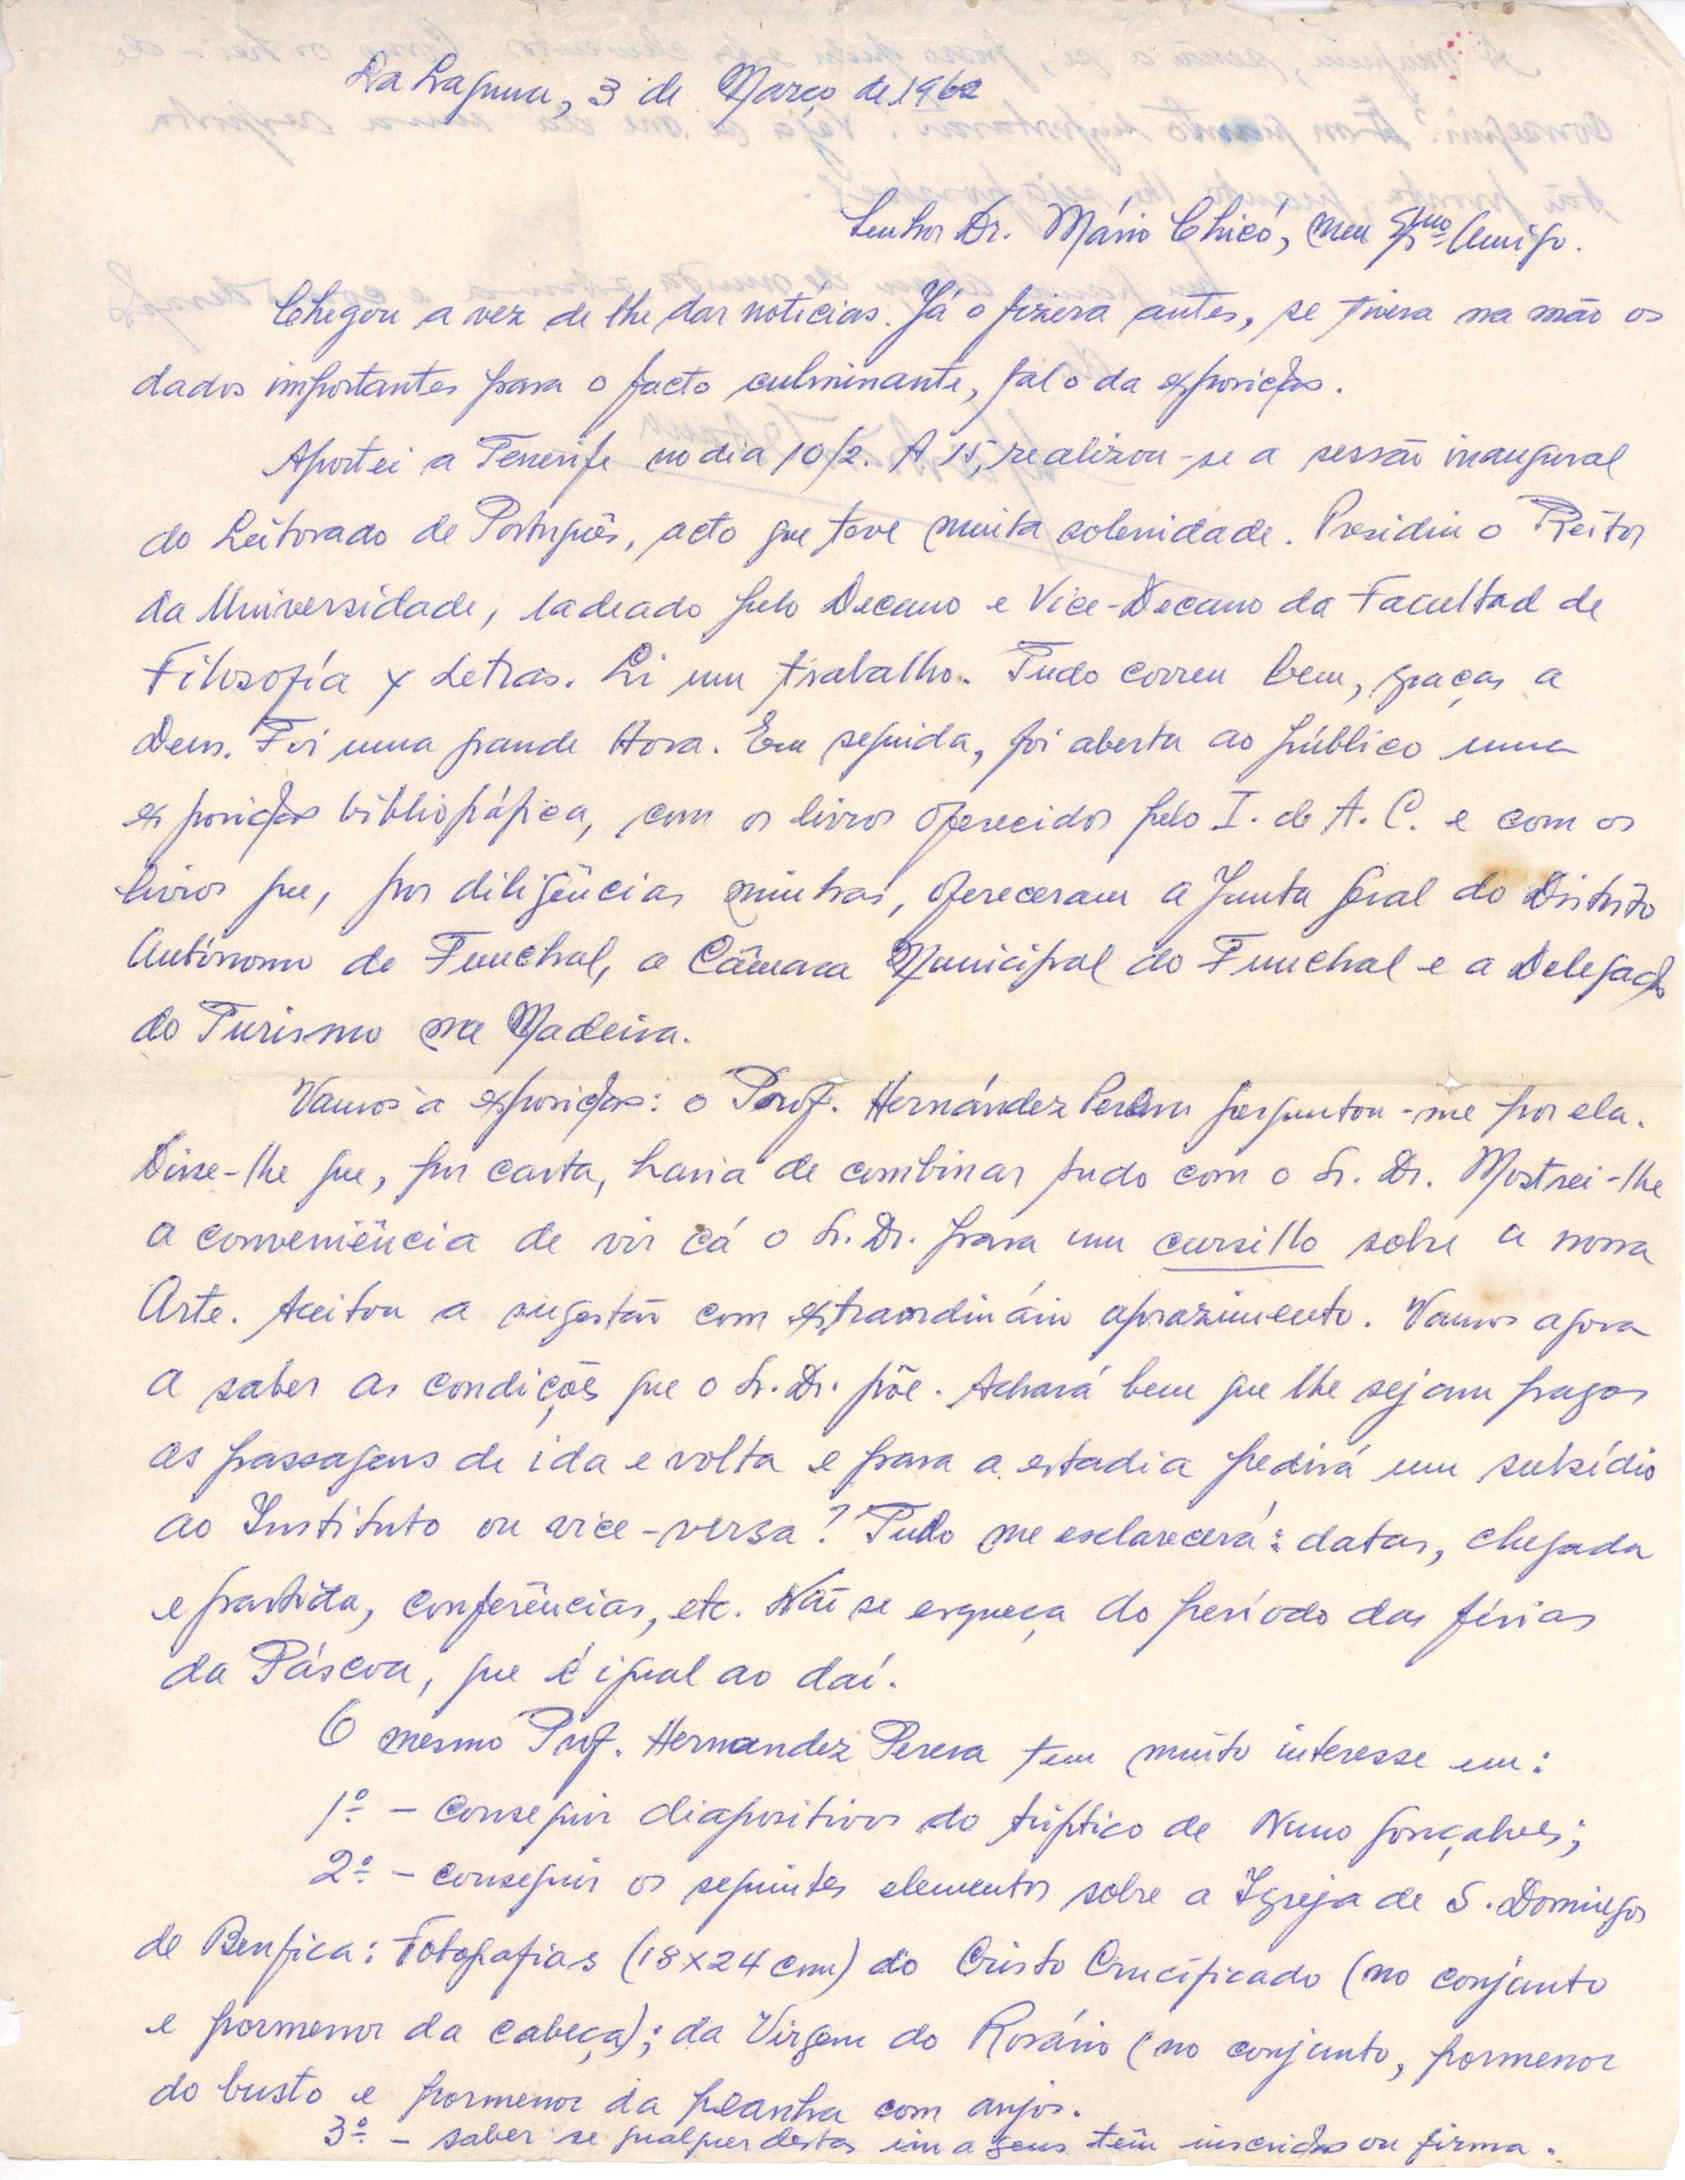 La Laguna, 3 de Março de 1962
Senhor Dr. Mário Chicó, meu Exmo Amigo.
Chegou a vez de lhe dar notícias. Já o fizera antes, se tivera na mão os
dados importantes para o facto culminante, fal o da exposição.
Aportei a Tenerife no dia 10/2. A 15, realizou-se a sessão inaugural
do Leitorado de Português, acto que teve muita solenidade. Presidiu o Reitor
da Universidade, ladeado pelo Decano e Vice-Decano da Facultad de
Filosofía y Letras. Li um trabalho. Tudo correu bem, graças a
Deus. Foi uma grande Hora. Em seguida, foi aberta ao público uma
exposição bibliográfica, com os livros oferecidos pelo I. de A. C. e com os
livros que, por diligências minhas, ofereceram a Junta Geral do Distrito
Autónomo de Funchal, a Câmara Municipal do Funchal e a Delegação
do Turismo na Madeira.
Vamos à exposição: o Prof. Hernández Perera perguntou-me por ela.
Disse-lhe que, por carta, havia de combinar tudo com o Sr. Dr. Mostrei-lhe
a conveniência de vir cá o Sr. Dr. para um cursillo sobre a nossa
Arte. Aceitou a sugestão com extraordinário aprazimento. Vamos agora
a saber as condições que o Sr. Dr. põe. Achará bem que lhe sejam pagas
as passagens de ida e volta e para a estadia pedirá um subsídio
ao Instituto ou vice-versa? Tudo me esclarecerá: datas, chegada
e partida, conferências, etc. Não se esqueça do período das férias
da Páscoa, que é igual ao daí.
O mesmo Prof. Hernandez Perera tem muito interesse em:
1º - conseguir diapositivos do tríptico de Nuno Gonçalves;
2º - conseguir os seguintes elementos sobre a Igreja de S. Domingos
de Benfica: Fotografias (18x24 cm) do Cristo Crucificado (no conjunto
e pormenor da cabeça); da Virgem do Rosário (no conjunto, pormenor
do busto e pormenor da peanha com anjos.
3º - saber se qualquer destas imagens têm inscrição ou firma.